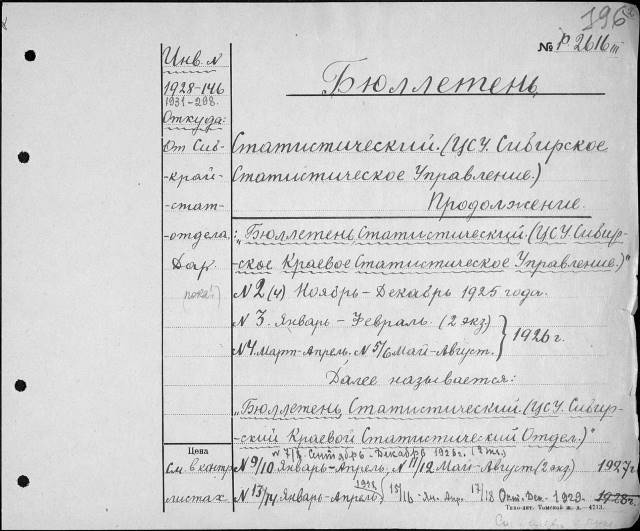 196
№ Р. 2616 III
Бюллетень
Инв. №
1928-146
1931-298.
Откуда:
От Сиб-
край-
стат-
отдела.
Дар.
Статистический. (ЦСУ. Сибирское
Статистическое Управление.)
Продолжение.
: „Бюллетень Статистический. (ЦСУ. Сибир-
ское Краевое Статистическое Управление.)“
№ 2 (4) Ноябрь-Декабрь 1925 года.
№ 3. Январь-Февраль. (2 экз)
№ 4 Март-Апрель. № 5/6 Май-Август. } 1926 г.
Далее называется:
„Бюллетень Статистический (ЦСУ. Сибир-
ский Краевой Статистический Отдел.)“
№ 7/8. Сентябрь-Декабрь 1926 г.
№ 9/10 Январь-Апрель, № 11/12 Май-Август (2 экз) 1927 г.
№ 13/14 Январь-Апрель 1928 15/16 - Ян. Апр. 17/18 Окт. Дек. - 1929. 1928 г.
Цена
См. в контр
листах.
Типо-лит. Томской ж. д.—4713.